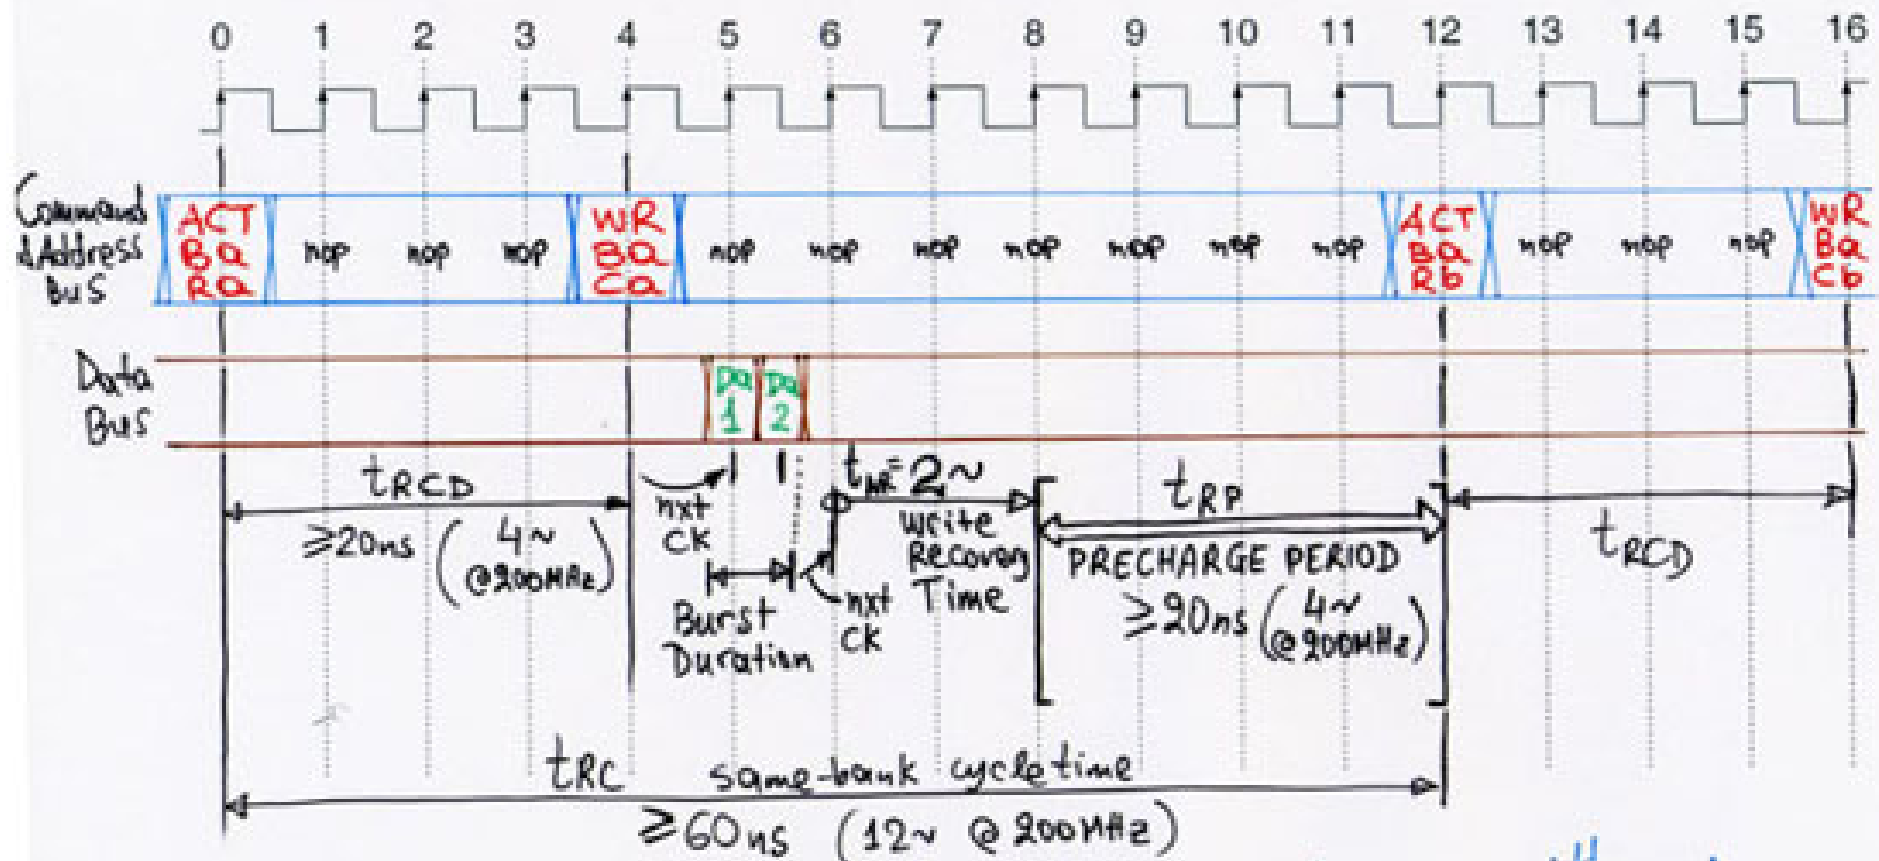 0 1 2 3 4 5 6 7 8 9 10 11 12 13 14 15 16
Command
&Address
Bus
ACT
Ba
Ra
nop nop nop
WR
Ba
Ca
nop nop nop nop nop nop nop
ACT
Ba
Rb
nop nop nop
WR
Ba
Cb
Data
Bus
Da
1
Da
2
tRCD
≥20ns (4~
@200MHz)
nxt
CK
Burst
Duration
nxt
CK
tWR=2~
Write
Recovery
Time
tRP
PRECHARGE PERIOD
≥20ns (4~
@200MHz)
tRCD
tRC same-bank cycle time
≥60ns (12~ @ 200MHz)